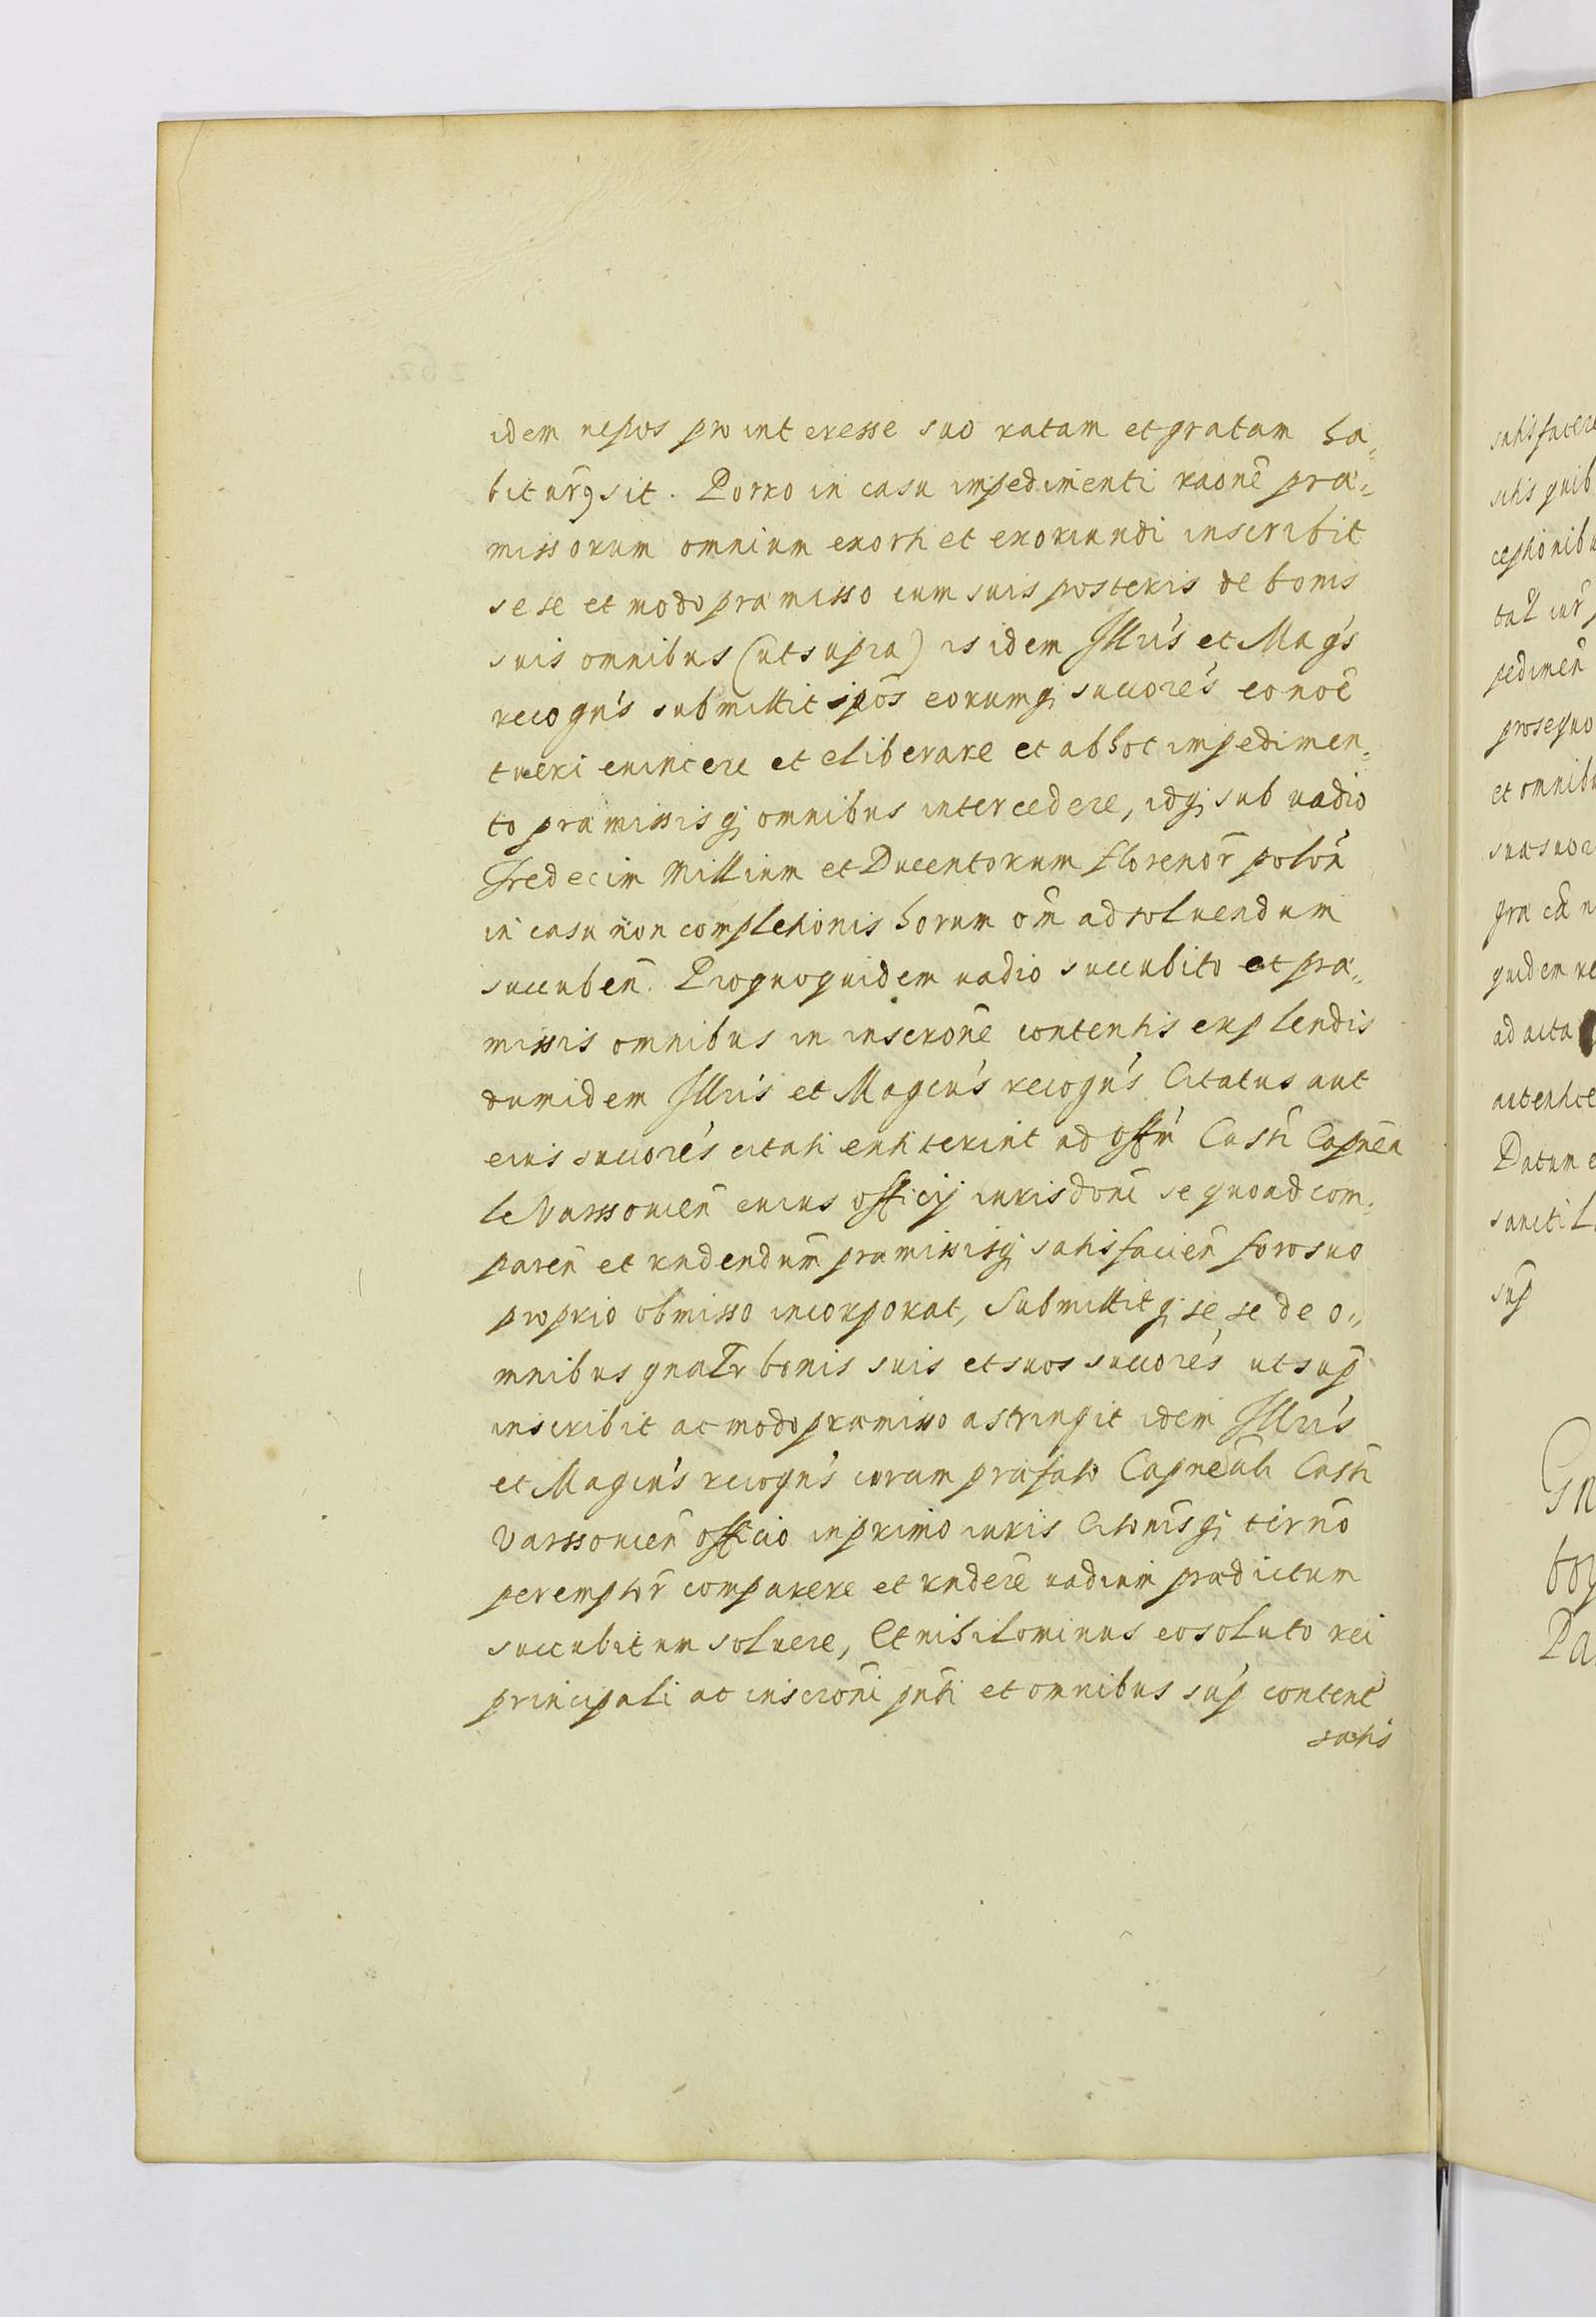 idem nepos pro interesse suo ratam et gratam ha„
bitur9 sit. Porro in casu impedimenti raõne præ„
missorum omnium exorti et exoriundi inscribit
sese et modo præmisso cum suis posteris de bonis
suis omnibus (ut supra) is idem Illris et Mag's
recogn's submittit ipos eorumq; succores eo noe
tueri evincere et eliberare et ab hoc impedimen„
to præmissisq; omnibus intercedere, idq; sub vadio
Tredecim Millium et Ducentorum florenor polon
in casu non completionis horum om ad soluendum
succuben. Pro quo quidem vadio succubito et præ„
missis omnibus in inscrone contentis explendis
dum idem Illris et Magcus recogn's Citatus aut
eius succores citati extiterint ad offm Castr Capnea
le Varssovien cuius officij iurisdoni se quoad com„
paren et rndendum præmissisq; satisfacien foro suo
proprio obmisso incorporat, Submittitq; se, se de o„
mnibus gnalr bonis suis et suos succores ut sup
inscribit ac modo præmisso astringit idem Illris
et Magcus recogn's coram præfato Capneali Castr
Varssovien officio in primo iuris Citonisq; tirno
peremptor comparere et rndere vadium prædictum
succubitum soluere, Et nihilominus eo soluto rei
principali ac inscroni pnti et omnibus sup content
satis
satisfacere
pedimen
et omnib
quidem
ad acta
Datum
sancti
sup